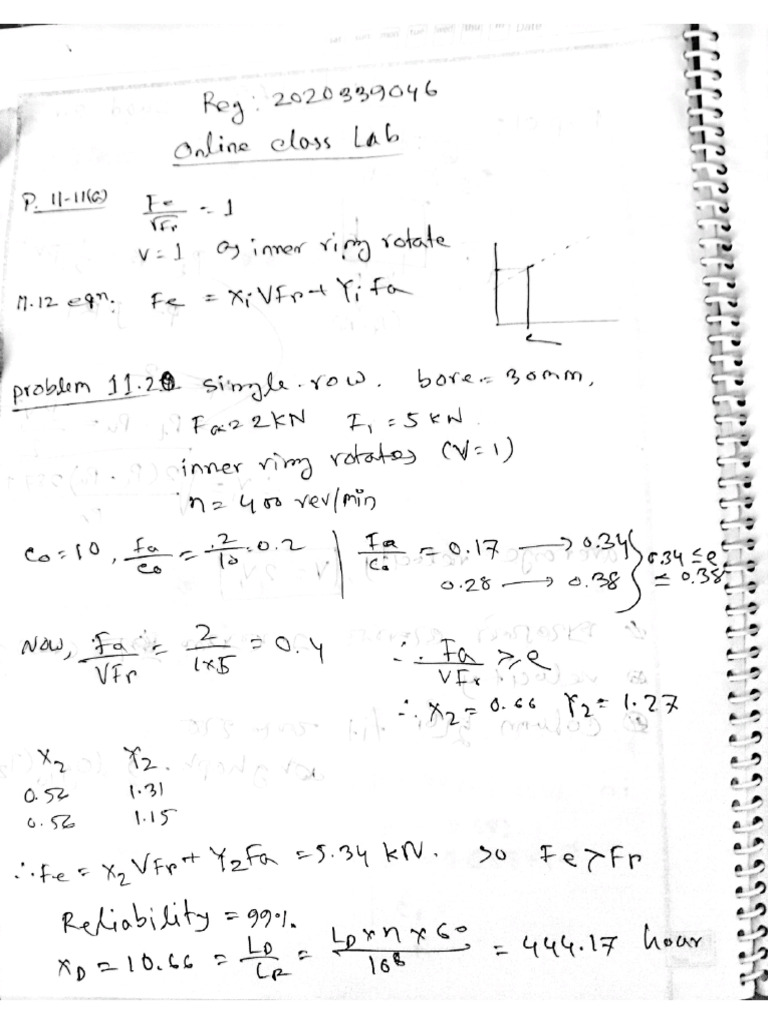 Reg: 2020339046
Online class Lab
P. 11-11(a) Fe/VFr = 1
V = 1 as inner ring rotate
11.12 eqn: Fe = XiVFr + YiFa
e
problem 11.20 single-row. bore = 30mm,
Fa = 2 KN F1 = 5 KN
inner ring rotates (V=1)
n = 400 rev/min
Co = 10, Fa/Co = 2/10 = 0.2 | Fa/Co = 0.17 → 0.34
0.28 → 0.38 } 0.34 ≤ e ≤ 0.38
Now, Fa/VFr = 2/1x5 = 0.4 ∴ Fa/VFr ≥ e
∴ X2 = 0.66 Y2 = 1.27
X2 Y2.
0.56 1.31
0.56 1.15
∴ Fe = X2VFr + Y2Fa = 5.34 KN. so Fe > Fr
Reliability = 99%.
XD = 10.66 = LD/LR = LD x n x 60/10^6 = 444.17 hour